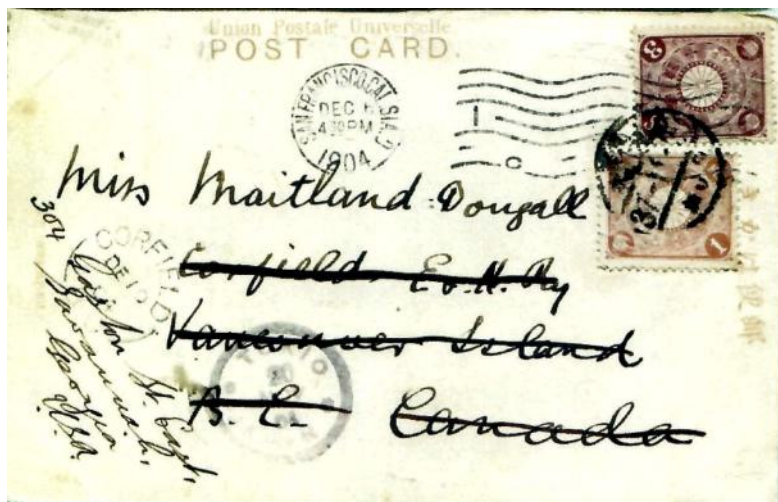 Union Postale Universelle
POST CARD.
SAN FRANCISCO, CAL.
DEC
4 PM
1904
3
1
37
Miss Maitland-Dougall
Corfield E. & N. Ry
Vancouver Island
B. C. Canada
CORFIELD
DE 10
TOKIO
20
04
304 Gaston St. East,
Savannah,
Georgia
U.S.A.